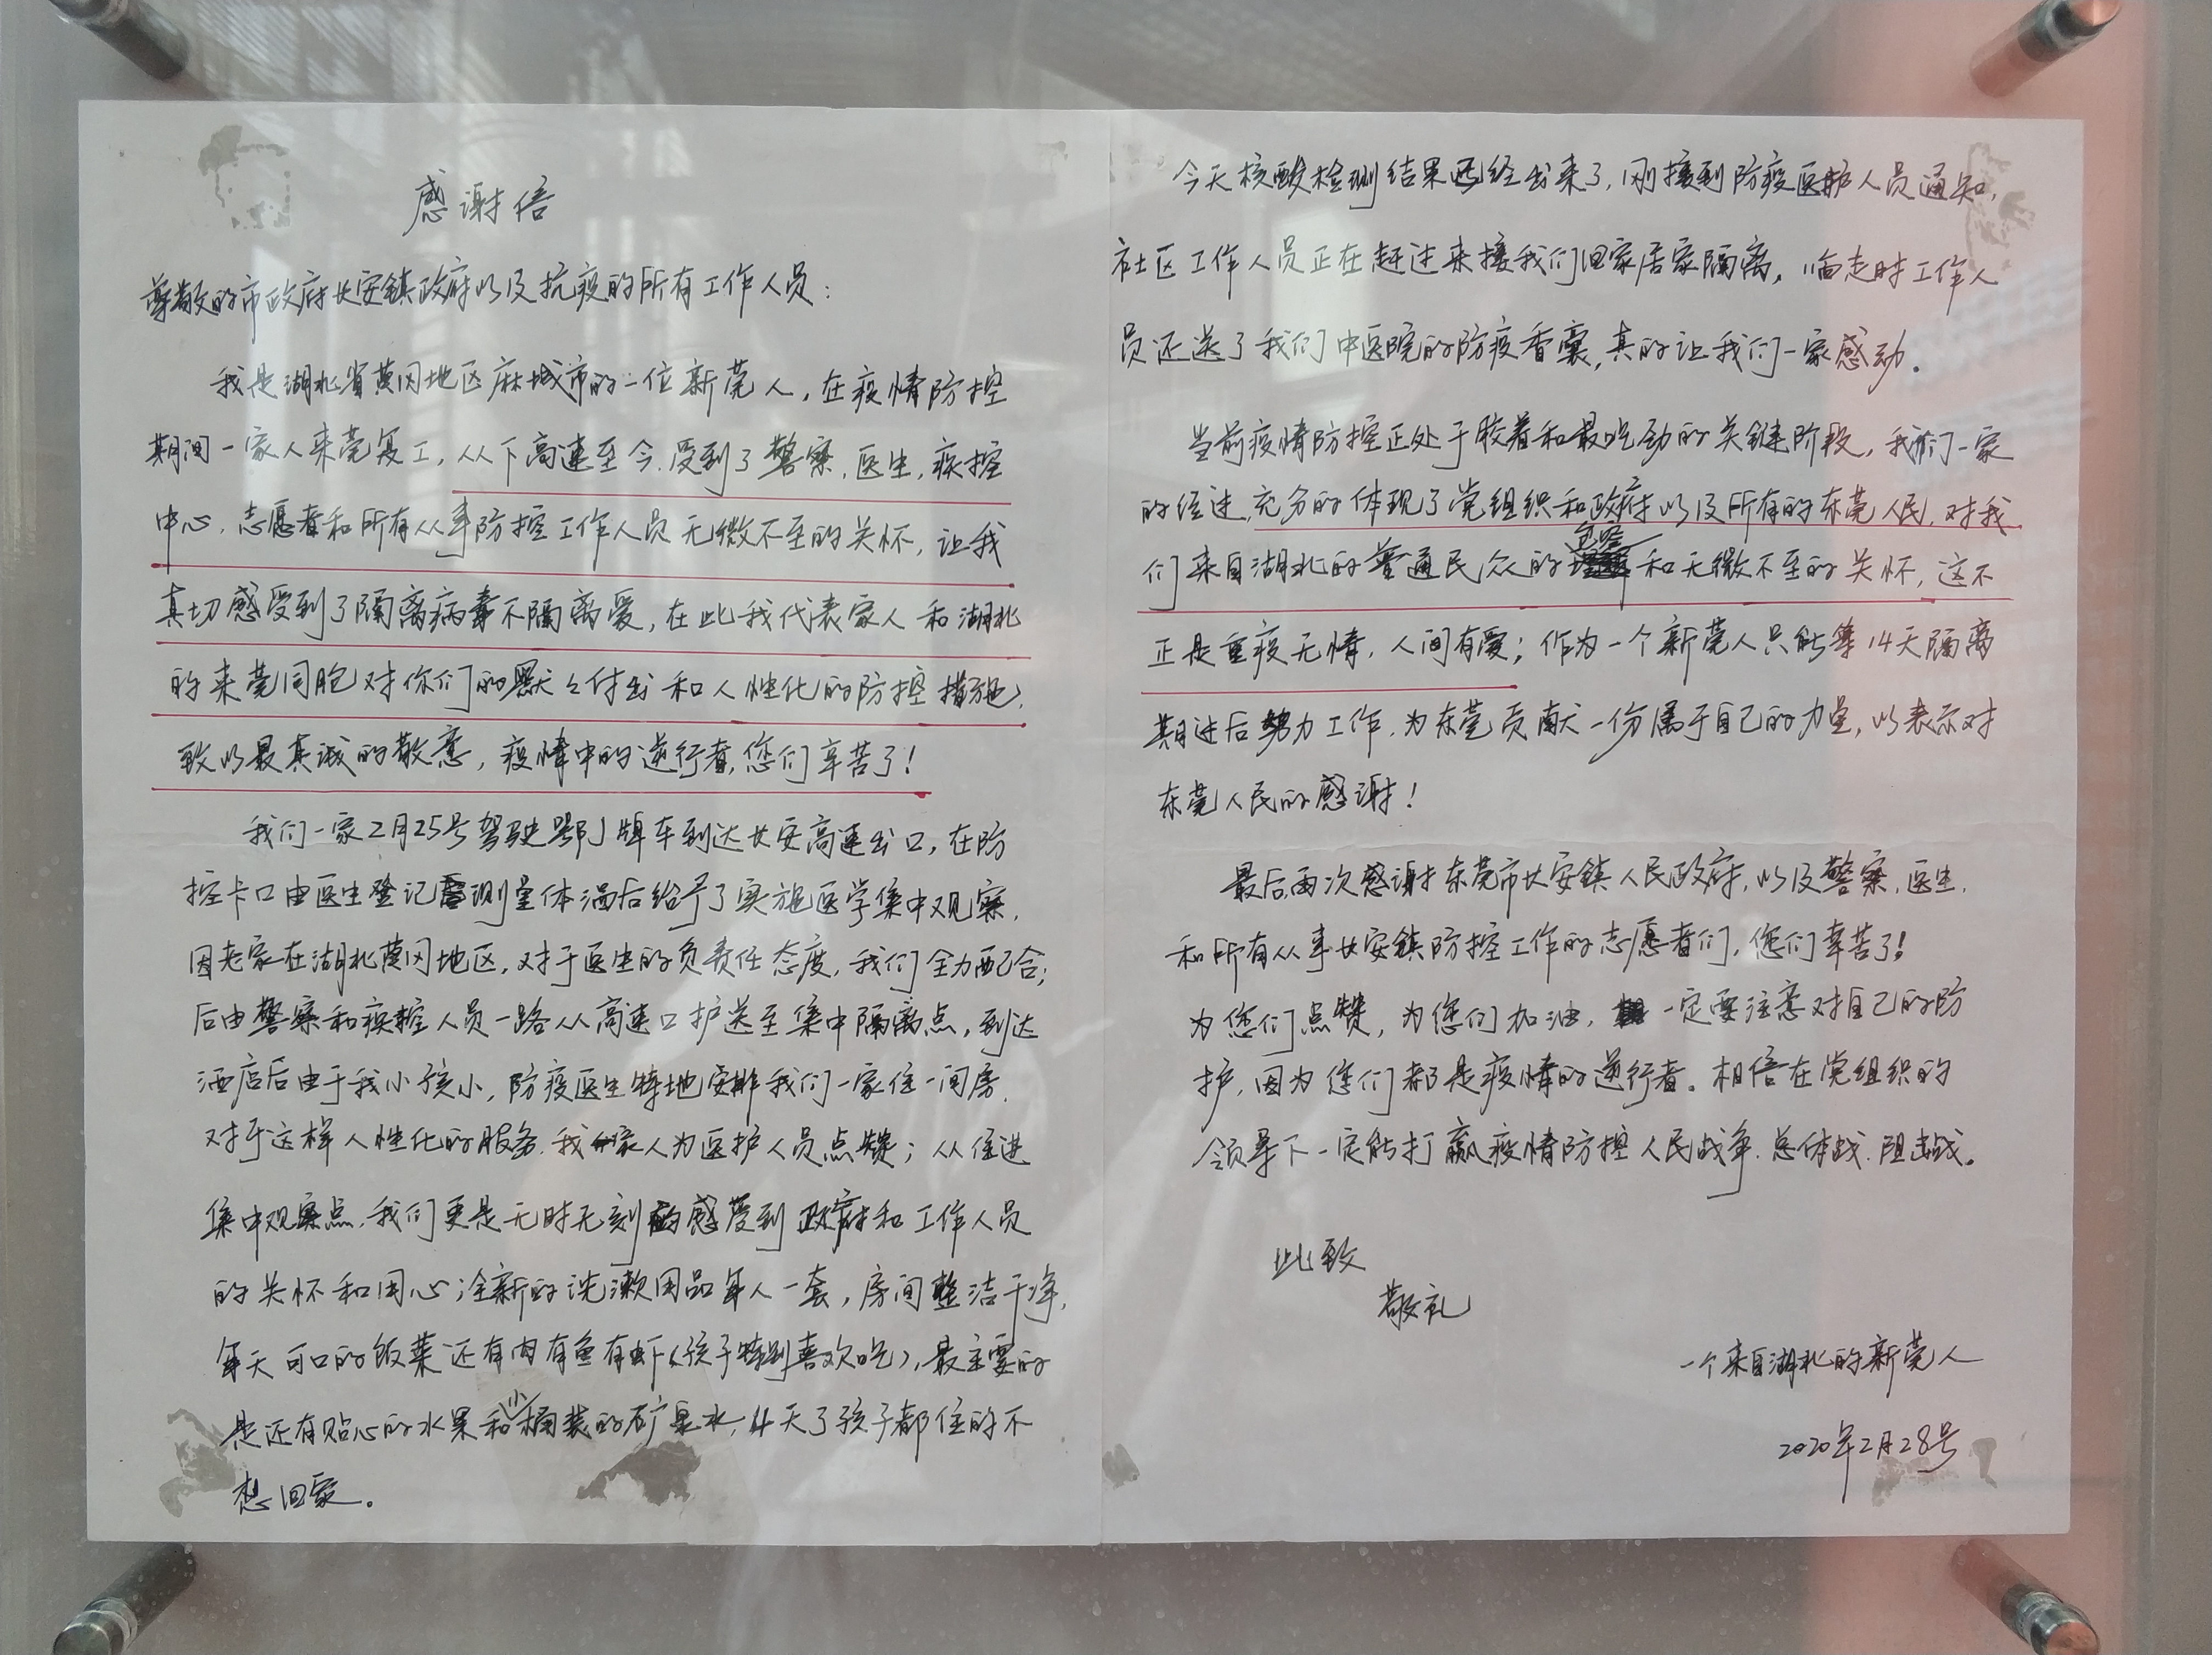 感谢信
尊敬的市政府长安镇政府以及抗疫的所有工作人员：
我是湖北省黄冈地区麻城市的一位新莞人，在疫情防控
期间一家人来莞复工，从下高速至今，受到了警察、医生、疾控
中心、志愿者和所有从事防控工作人员无微不至的关怀，让我
真切感受到了隔离病毒不隔离爱，在此我代表家人和湖北
的来莞同胞对你们的默々付出和人性化的防控措施，
致以最真诚的敬意，疫情中的逆行者，您们辛苦了！
我们一家2月25号驾驶鄂J牌车到达长安高速出口，在防
控卡口由医生登记测量体温后给予了实施医学集中观察，
因老家在湖北黄冈地区，对于医生的负责任态度，我们全力配合；
后由警察和疾控人员一路从高速口护送至集中隔离点，到达
酒店后由于我小孩小，防疫医生特地安排我们一家住一间房，
对于这样人性化的服务，我家人为医护人员点赞；从住进
集中观察点，我们更是无时无刻的感受到政府和工作人员
的关怀和用心；全新的洗漱用品每人一套，房间整洁干净，
每天可口的饭菜还有肉有鱼有虾（孩子特别喜欢吃），最主要的
是还有贴心的水果和小桶装的矿泉水，4天了孩子都住的不
想回家。
今天核酸检测结果已经出来了，刚接到防疫医护人员通知，
社区工作人员正在赶过来接我们回家居家隔离，临走时工作人
员还送了我们中医院的防疫香囊，真的让我们一家感动。
当前疫情防控正处于胶着和最吃劲的关键阶段，我们一家
的经过，充分的体现了党组织和政府以及所有的东莞人民，对我
们来自湖北的普通民众的包容和无微不至的关怀，这不
正是重疫无情，人间有爱；作为一个新莞人只能等14天隔离
期过后努力工作，为东莞贡献一份属于自己的力量，以表示对
东莞人民的感谢！
最后再次感谢东莞市长安镇人民政府，以及警察、医生、
和所有从事长安镇防控工作的志愿者们，您们辛苦了！
为您们点赞，为您们加油，一定要注意对自己的防
护，因为您们都是疫情的逆行者。相信在党组织的
领导下一定能打赢疫情防控人民战争、总体战、阻击战。
此致
敬礼
一个来自湖北的新莞人
2020年2月28号